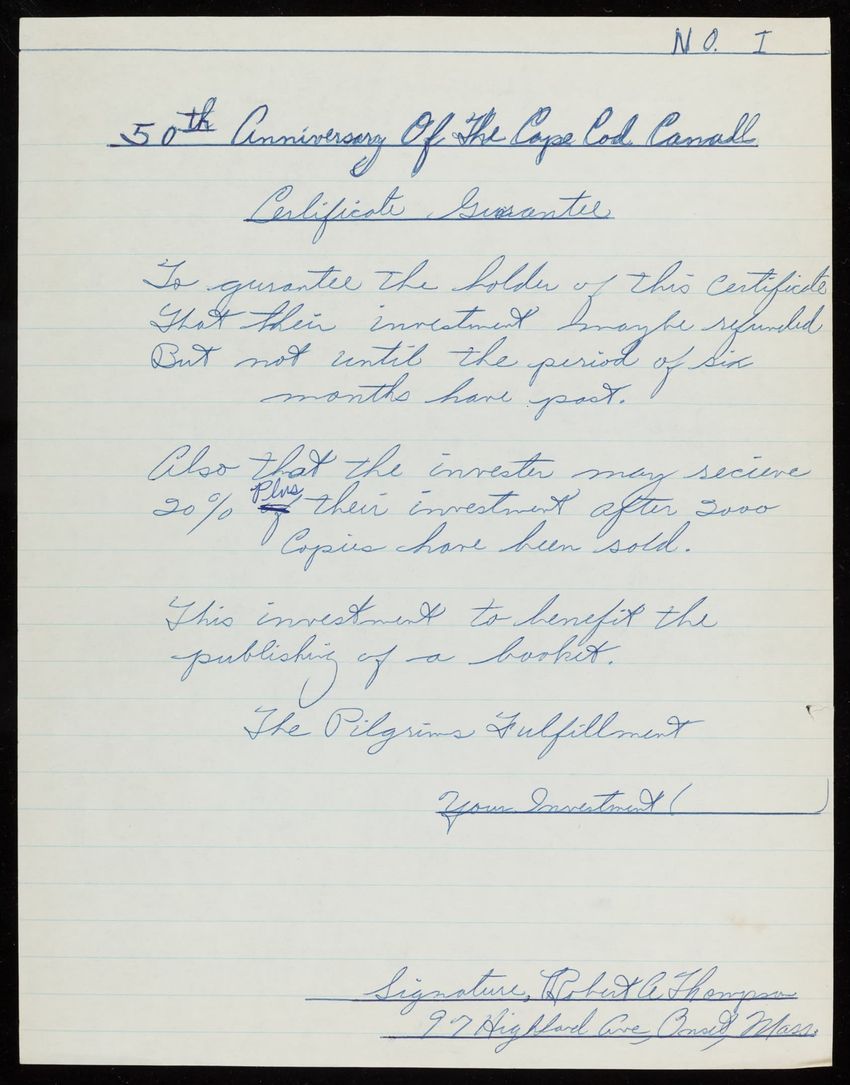 NO. I
50th Anniversary Of The Cape Cod Canall
Certificate Gurantee
To gurantee the holder of this Certificate
That their investment maybe refunded
But not until the period of six
months have past.
Also that the invester may recieve
20% Plus their investment after 2000
Copies have been sold.
This investment to benefit the
publishing of a booket.
The Pilgrims Fulfillment
Your Investment (            )
Signature, Robert A Thompson
97 Highland Ave, Onset, Mass.